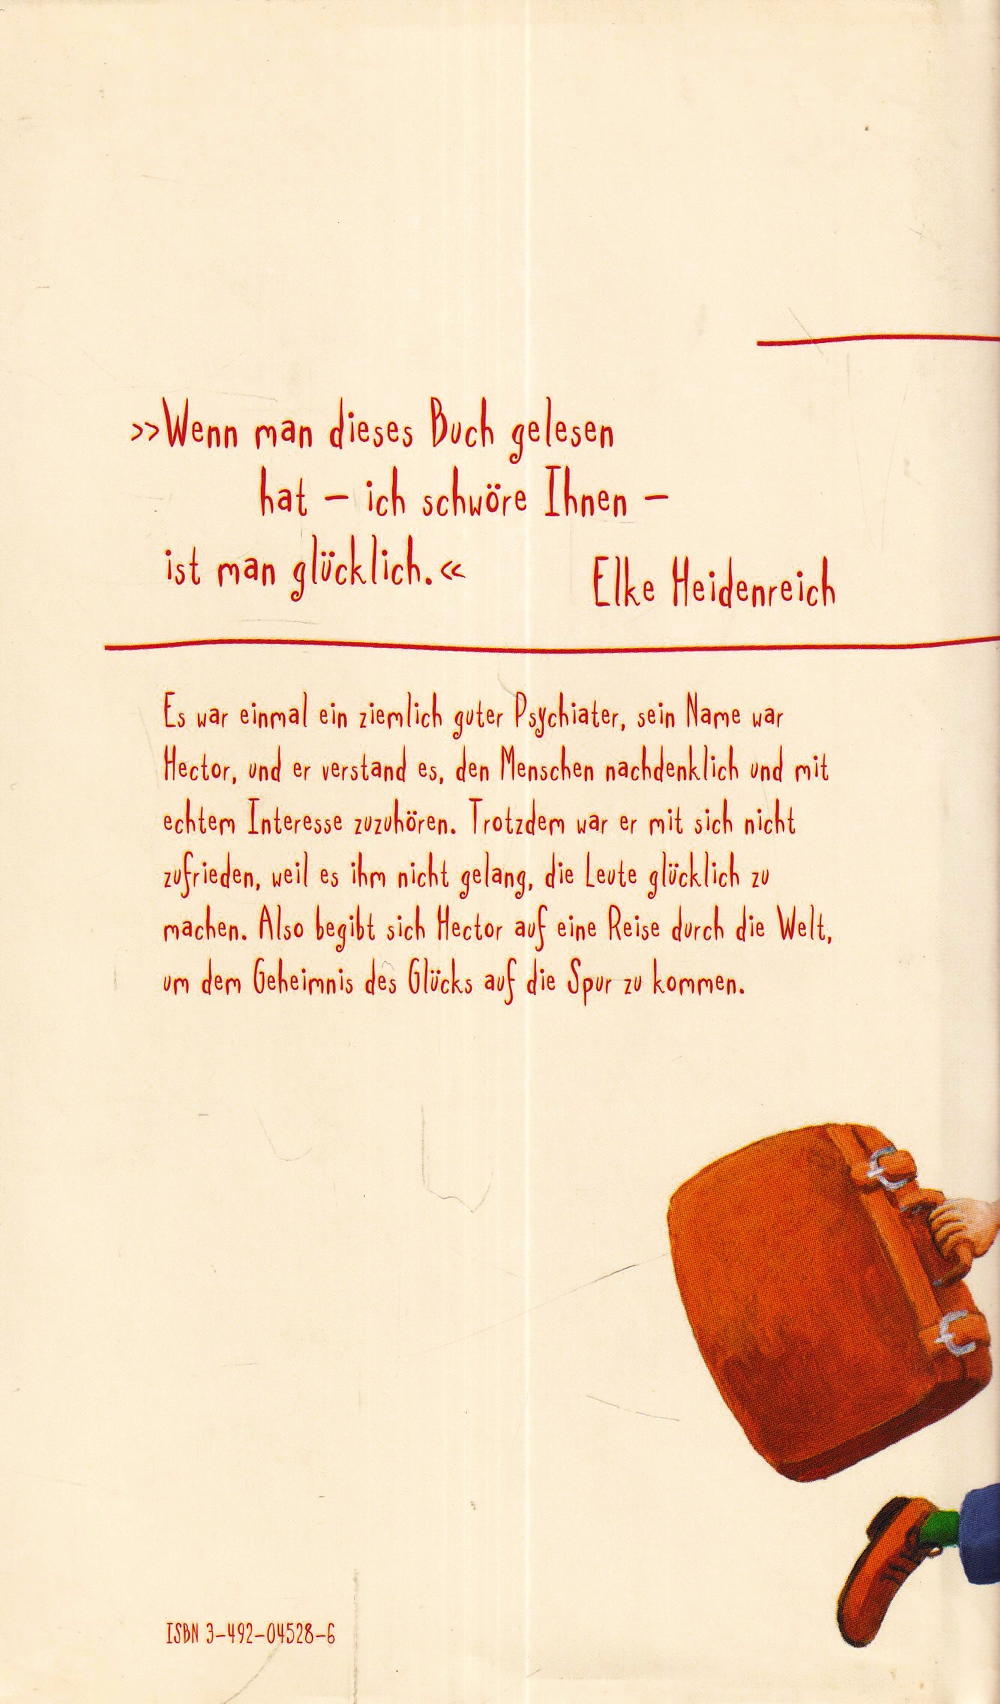 »Wenn man dieses Buch gelesen
hat – ich schwöre Ihnen –
ist man glücklich.«
Elke Heidenreich
Es war einmal ein ziemlich guter Psychiater, sein Name war
Hector, und er verstand es, den Menschen nachdenklich und mit
echtem Interesse zuzuhören. Trotzdem war er mit sich nicht
zufrieden, weil es ihm nicht gelang, die Leute glücklich zu
machen. Also begibt sich Hector auf eine Reise durch die Welt,
um dem Geheimnis des Glücks auf die Spur zu kommen.
ISBN 3-492-04528-6